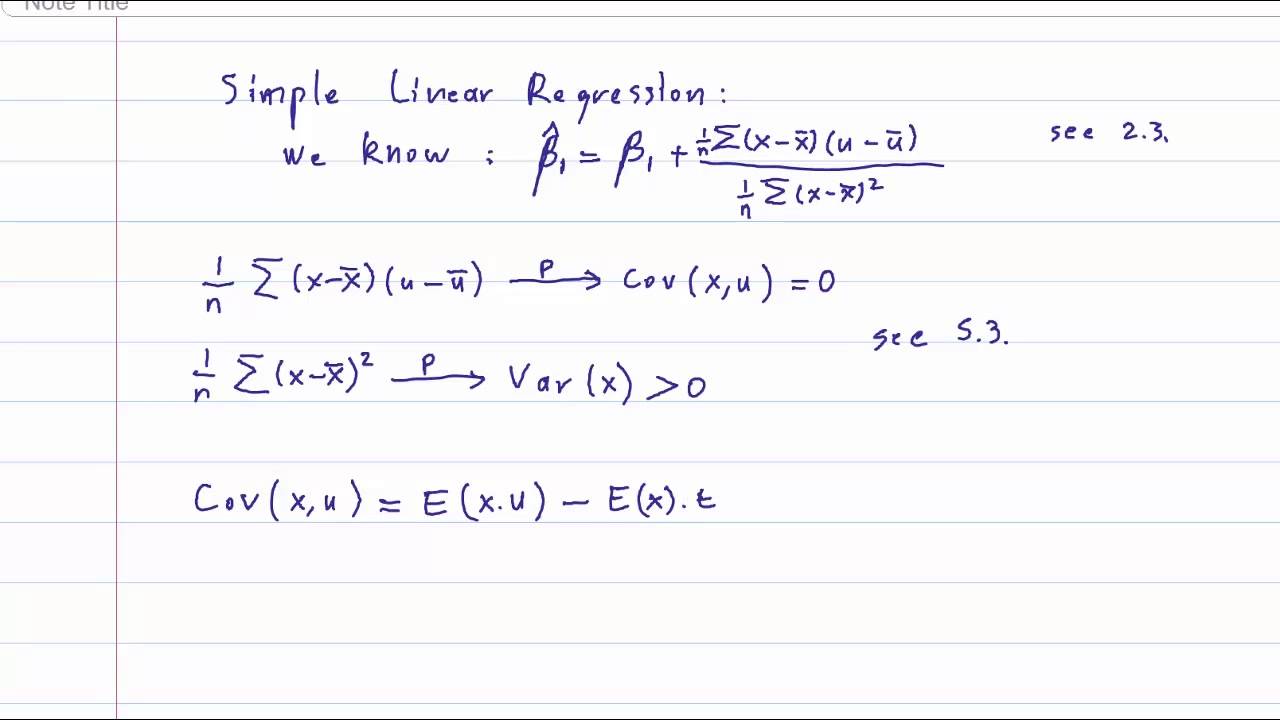 Note Title
Simple Linear Regression:
we know: β̂₁ = β₁ + (1/n Σ(x-x̄)(u-ū)) / (1/n Σ(x-x̄)²) see 2.3.
1/n Σ(x-x̄)(u-ū) —p→ Cov(x,u) = 0
see 5.3.
1/n Σ(x-x̄)² —p→ Var(x) > 0
Cov(x,u) = E(x.u) - E(x).